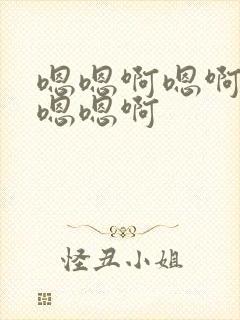 嗯嗯啊嗯啊
嗯嗯啊
怪丑小姐